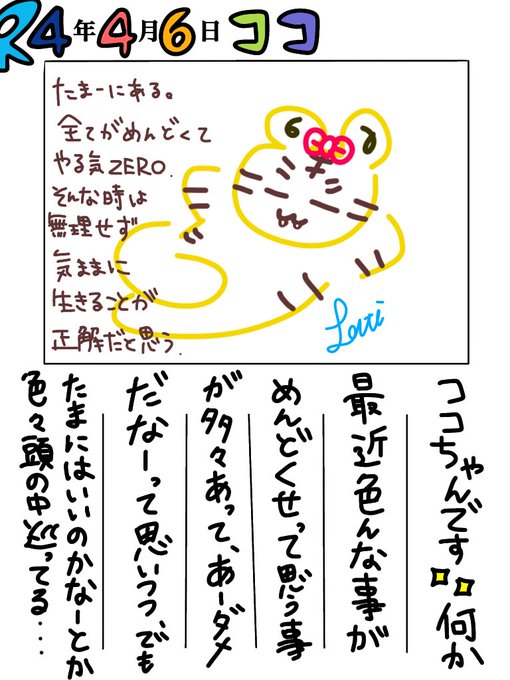 R4年4月6日 ココ
たまーにある。
全てがめんどくて
やる気ZERO.
そんな時は
無理せず
気ままに
生きることが
正解だと思う.
Lati
ココちゃんです 何か
最近色んな事が
めんどくせって思う事
が多々あって、あーダメ
だなーって思いつつ、でも
たまにはいいのかなーとか
色々頭の中巡ってる...